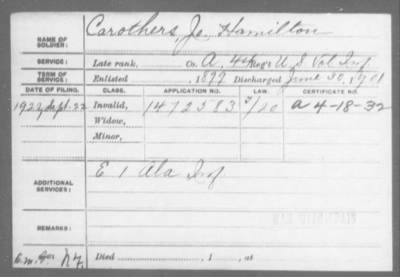 NAME OF SOLDIER: Carothers, J. Hamilton
SERVICE: Late rank, Co. A, 44 Reg't U S Vol Inf
TERM OF SERVICE: Enlisted 1899 Discharged June 30, 1901
DATE OF FILING. CLASS. APPLICATION NO. LAW. CERTIFICATE NO.
1922 Sept. 22 Invalid, 1472583 A 4-18-32
Widow,
Minor,
ADDITIONAL SERVICES: E 1 Ala Inf
REMARKS:
Died , 1 , at